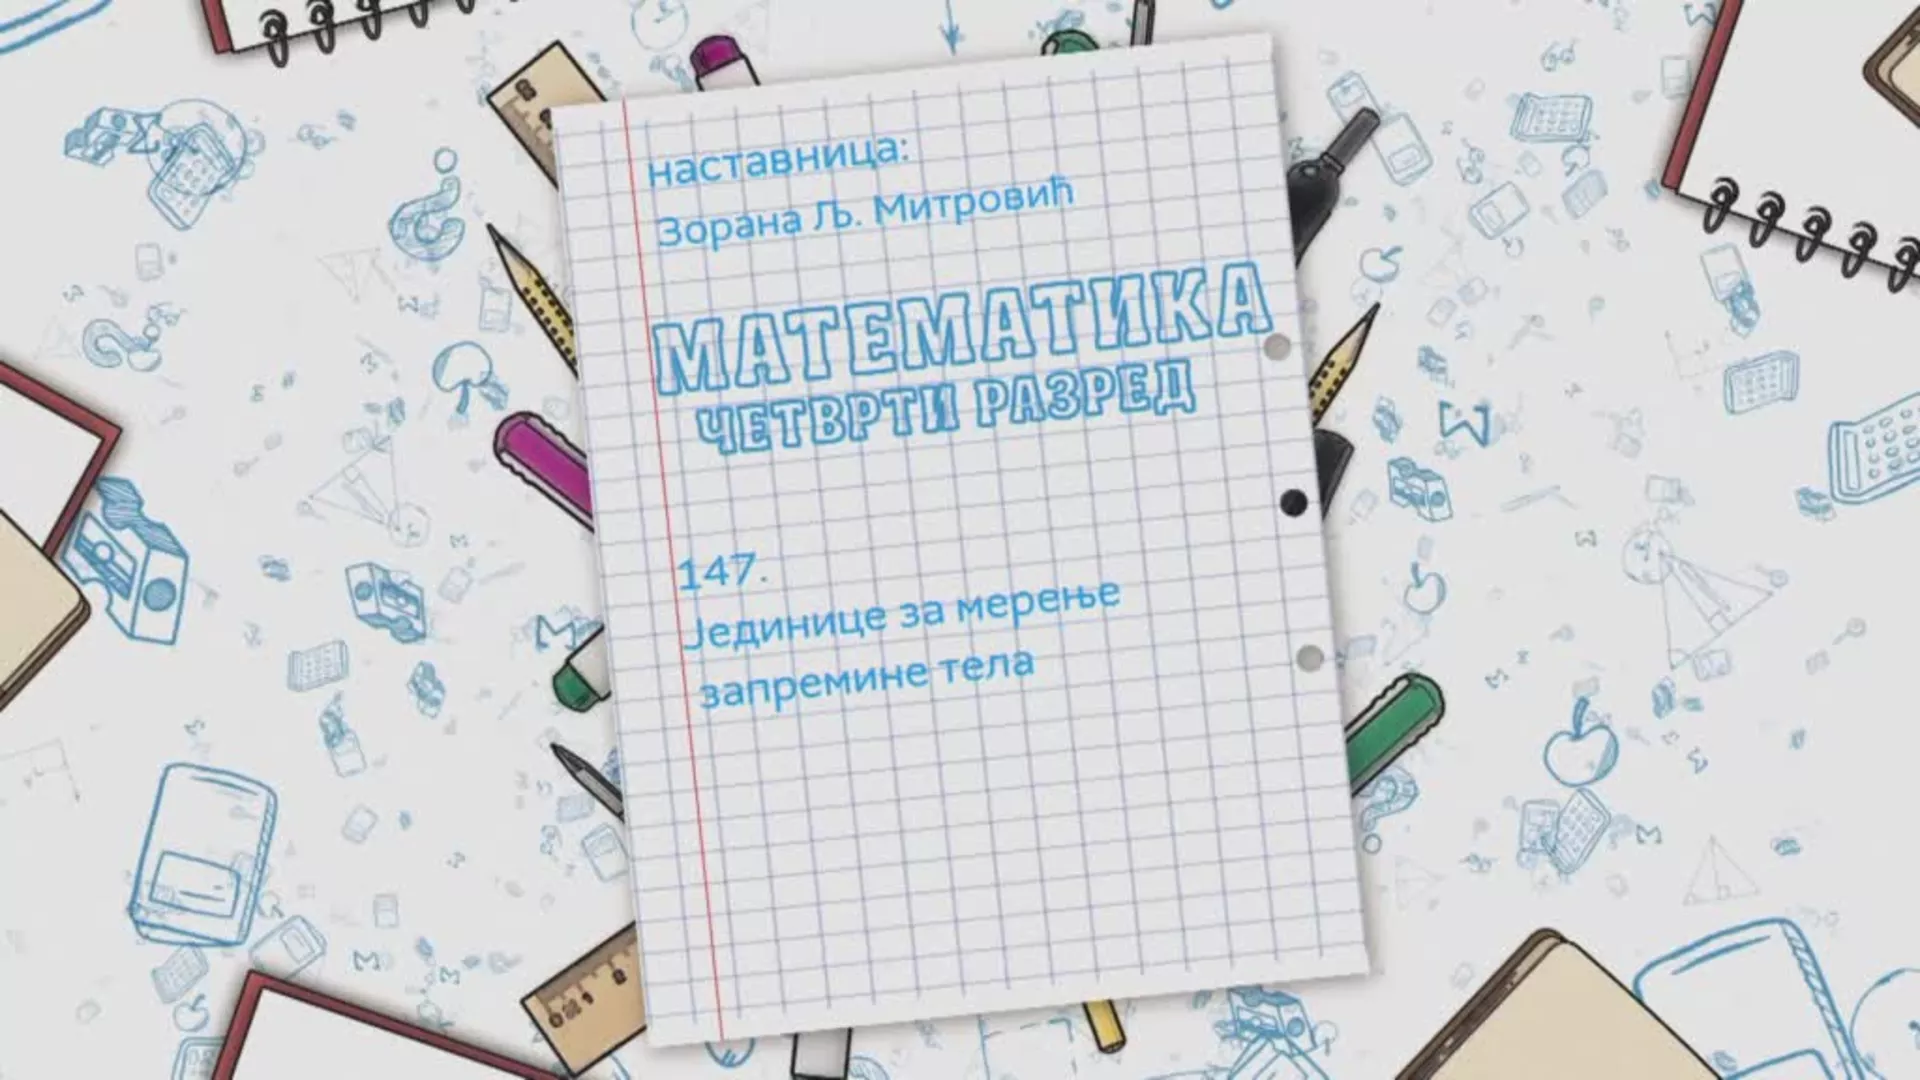 наставница:
Зорана Љ. Митровић
МАТЕМАТИКА
ЧЕТВРТИ РАЗРЕД
147.
Јединице за мерење
запремине тела